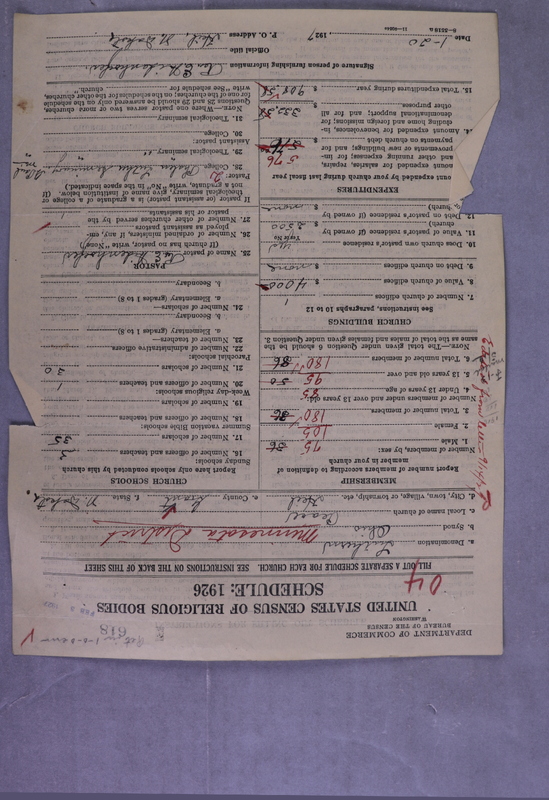 DEPARTMENT OF COMMERCE
BUREAU OF THE CENSUS
WASHINGTON
618
UNITED STATES CENSUS OF RELIGIOUS BODIES
SCHEDULE: 1926
04
FILL OUT A SEPARATE SCHEDULE FOR EACH CHURCH. SEE INSTRUCTIONS ON THE BACK OF THIS SHEET
a. Denomination Lutheran
b. Synod Ohio Minnesota District
c. Local name of church Peace
d. City, town, village, or township, etc. Heil e. County Grant f. State N. Dakota
MEMBERSHIP
Report number of members according to definition of
member in your church
Number of members, by sex:
1. Male 75
2. Female 105
2. Total number of members 180 86
Number of members under and over 13 years old:
4. Under 13 years of age
5. 13 years old and over 95 50
6. Total number of members 180 86
NOTE.—The total given under Question 6 should be the
same as the total of males and females given under Question 3.
CHURCH BUILDINGS
See instructions, paragraphs 10 to 12
7. Number of church edifices 1
8. Value of church edifices $ 4000
9. Debt on church edifices $ none
10. Does church own pastor's residence yes
Yes or No
11. Value of pastor's residence (if owned by
church) $ 2500
12. Debt on pastor's residence (if owned by
church) $ none
EXPENDITURES
ount expended by your church during last fiscal year
ount expended for salaries, repairs,
and other running expenses; for im-
provements or new buildings; and for
payments on church debt $ 576
14. Amount expended for benevolences, in-
cluding home and foreign missions; for
denominational support; and for all
other purposes $ 332.58
15. Total expenditures during year $ 908.58
CHURCH SCHOOLS
Report here only schools conducted by this church
Sunday schools:
16. Number of officers and teachers 3
17. Number of scholars 35
Summer vacation Bible schools:
18. Number of officers and teachers
19. Number of scholars
Week-day religious schools:
20. Number of officers and teachers 1
21. Number of scholars 30
Parochial schools:
22. Number of administrative officers
23. Number of teachers—
a. Elementary (grades 1 to 8)
b. Secondary
24. Number of scholars—
a. Elementary (grades 1 to 8)
b. Secondary
PASTOR
25. Name of pastor
(If church has no pastor, write "None")
26. Number of assistant ministers, if any, em-
ployed as assistant pastors
27. Number of other churches served by the
pastor or his assistants
If pastor (or assistant pastor) is a graduate of a college or
theological seminary, give name of institution below. (If
not a graduate, write "No" in the space indicated.)
Pastor:
28. College
29. Theological seminary
Assistant pastor:
30. College
31. Theological seminary
NOTE.—Where one pastor serves two or more churches,
Questions 28 and 29 should be answered only on the schedule
for one of the churches; on the schedules for the other churches,
write "See schedule for church."
Signature of person furnishing information
Official title
Date 1-20 1927 P. O. Address Heil, N. Dakota